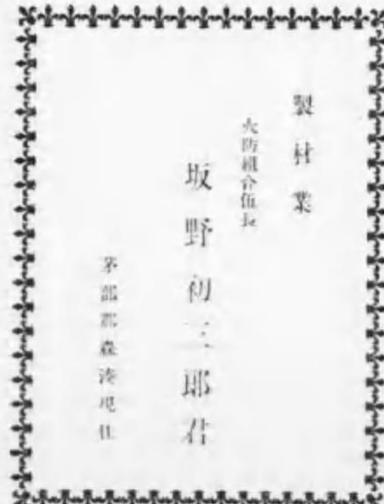 製材業
火防組合伍長
坂野初三郎君
茅部郡森湊現住